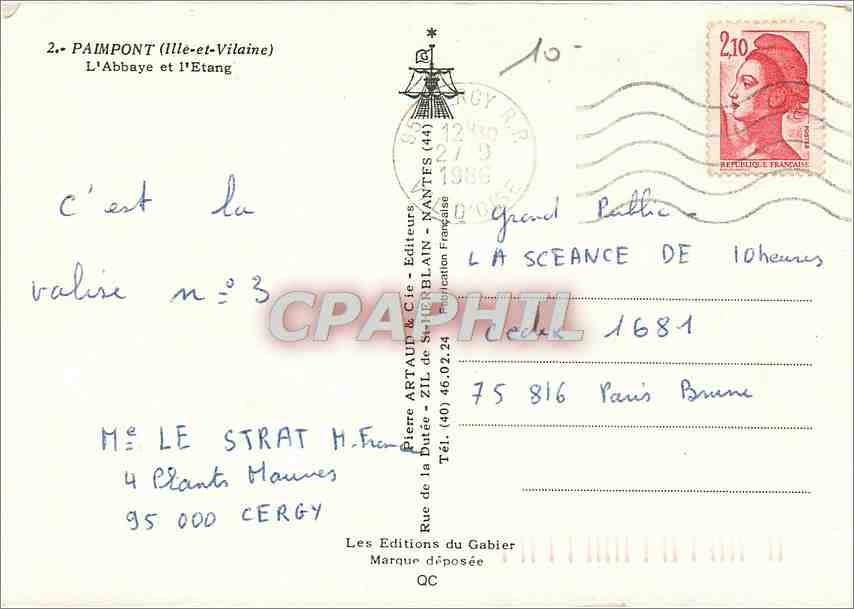 2.- PAIMPONT (Ille-et-Vilaine)
L'Abbaye et l'Etang
10 -
G
2,10
POSTES
REPUBLIQUE FRANÇAISE
95 CERGY R.P.
12H
27 9
1986
D'OISE
c'est la
valise n° 3
Me LE STRAT M. France
4 Plants Mauves
95 000 CERGY
Pierre ARTAUD & Cie - Editeurs
Rue de la Dutée - ZIL de St-HERBLAIN - NANTES (44)
Tél. (40) 46.02.24 Fabrication Française
Grand Public -
LA SCEANCE DE 10 heures
Cedex 1681
75 816 Paris Brune
CPAPHIL
Les Editions du Gabier
Marque déposée
QC